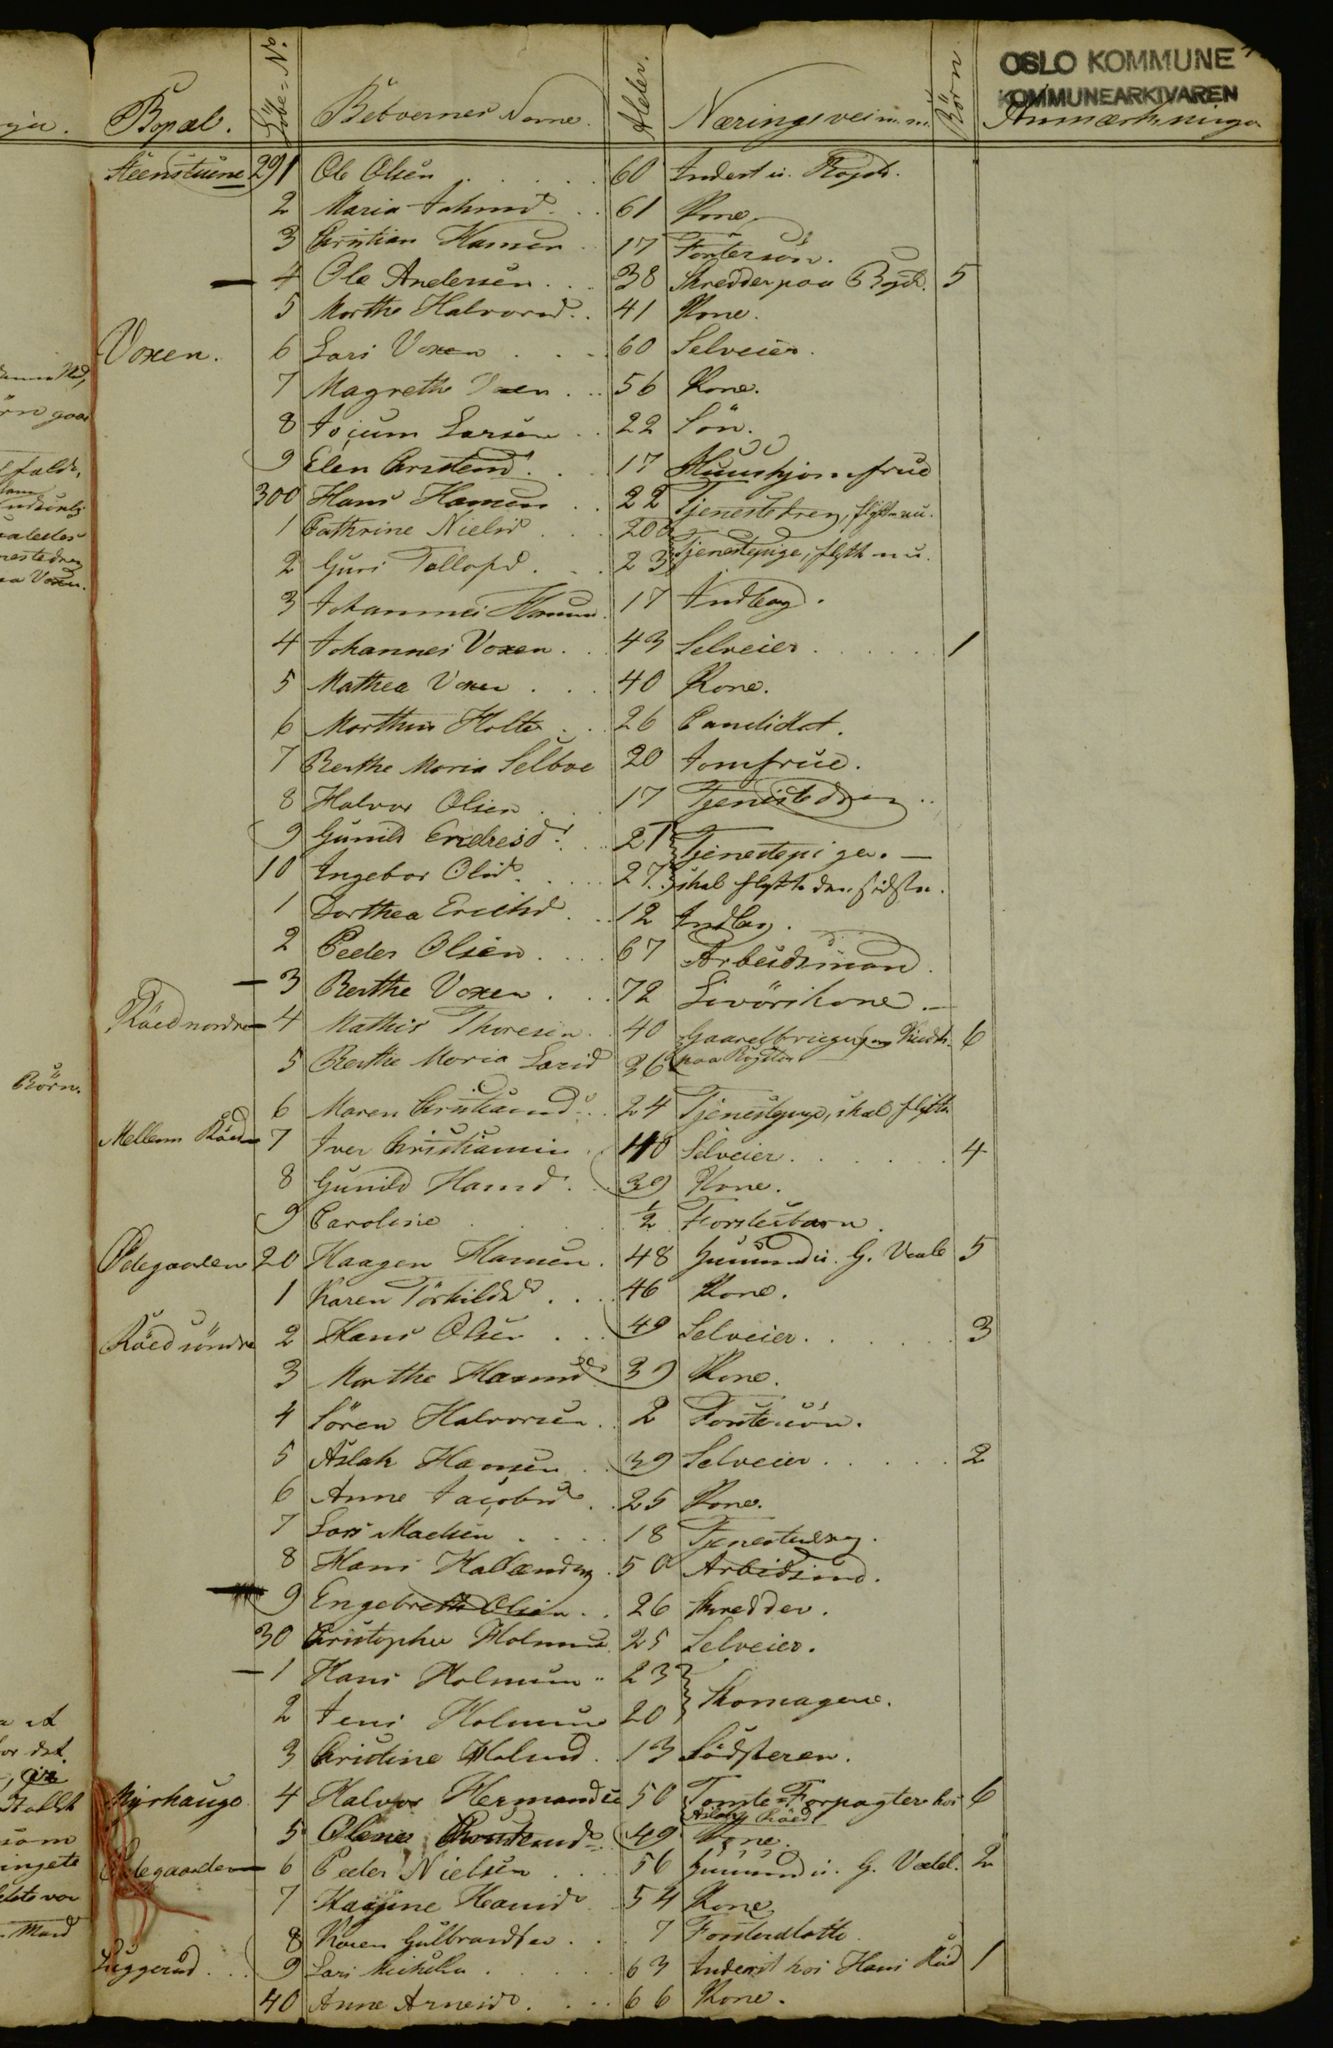 OSLO KOMMUNE
KOMMUNEARKIVAREN
Bopæl. Löbe-No. Beboernes Navne. Alder. Næringsvei m.m. Börn Anmærkninger
Steenstuene 291 Ole Olsen 60 Inderst u. Bogst.
2 Maria Johnsd. 61 Kone
3 Christian Hansen 17 Fostersön.
4 Ole Andersen 38 Skredder paa Bogst. 5
5 Marthe Halvorsd. 41 Kone.
Voxen. 6 Lars Voxen 60 Selveier.
7 Magrethe Voxen 56 Kone.
8 Jocum Larsen 22 Sön.
9 Elen Christensd. 17 Huusjomfrue
300 Hans Hansen 22 Tjenestedreng, flytter nu.
1 Cathrine Nielsd 20
2 Guri Tollofsd. 23 Tjenestepige, flytte nu.
3 Johannes Hansen 17 Indlag.
4 Johannes Voxen 43 Selveier 1
5 Mathea Voxen 40 Kone.
6 Morthen Holter 26 Candidat.
7 Berthe Maria Selboe 20 Jomfrue.
8 Halvor Olsen 17 Tjenestedreng
9 Gunild Endresd. 21 Tjenestepiger.
10 Ingebor Olsd. 27 skal flytte den sidste.
1 Dorthea Erichsd 12 Indlag.
2 Peder Olsen 67 Arbeidsmand
3 Berthe Voxen 72 Livörskone
Röed nordre 4 Mathis Thoresen 40 Gaardbruger 6
5 Berthe Maria Larsd 36 paa Bogstad
6 Maren Christiansd. 24 Tjenestepige, skal flytte
Mellem Röed 7 Iver Christiansen 40 Selveier 4
8 Gunild Hansd. 39 Kone.
9 Caroline ½ Fosterbarn.
Ödegaarden 20 Haagen Hansen 48 Huusmd u. G. Vœkk 5
1 Karen Torkildsd. 46 Kone.
Röed söndre 2 Hans Olsen 49 Selveier 3
3 Marthe Hansd 39 Kone.
4 Sören Halvorsen 2 Fostersön.
5 Aslak Hansen 39 Selveier 2
6 Anne Jacobsd 25 Kone.
7 Lars Madsen 18 Tjenestedreng.
8 Hans Hallænder 50 Arbeidsmd.
9 Engebreth Olsen 26 Skredder.
30 Christopher Holmsen 25 Selveier.
1 Hans Holmsen 23
2 Jens Holmsen 20 Skomagere.
3 Christine Holmsd 13 Södsteren.
Myrhauge 4 Halvor Hermandsen 50 Tomte-Forpagter hos 6
Aslag Röed
5 Olene 49 Kone.
Ödegaarden 6 Peder Nielsen 56 Huusmd u. G. 2
7 Hansd 54 Kone
8 Karen Gulbrandsen 7 Fosterdatte
Luggerud 9 Lars 63 Inderst hos Hans Röd 1
40 Anne Arnesd. 66 Kone.
Börn.